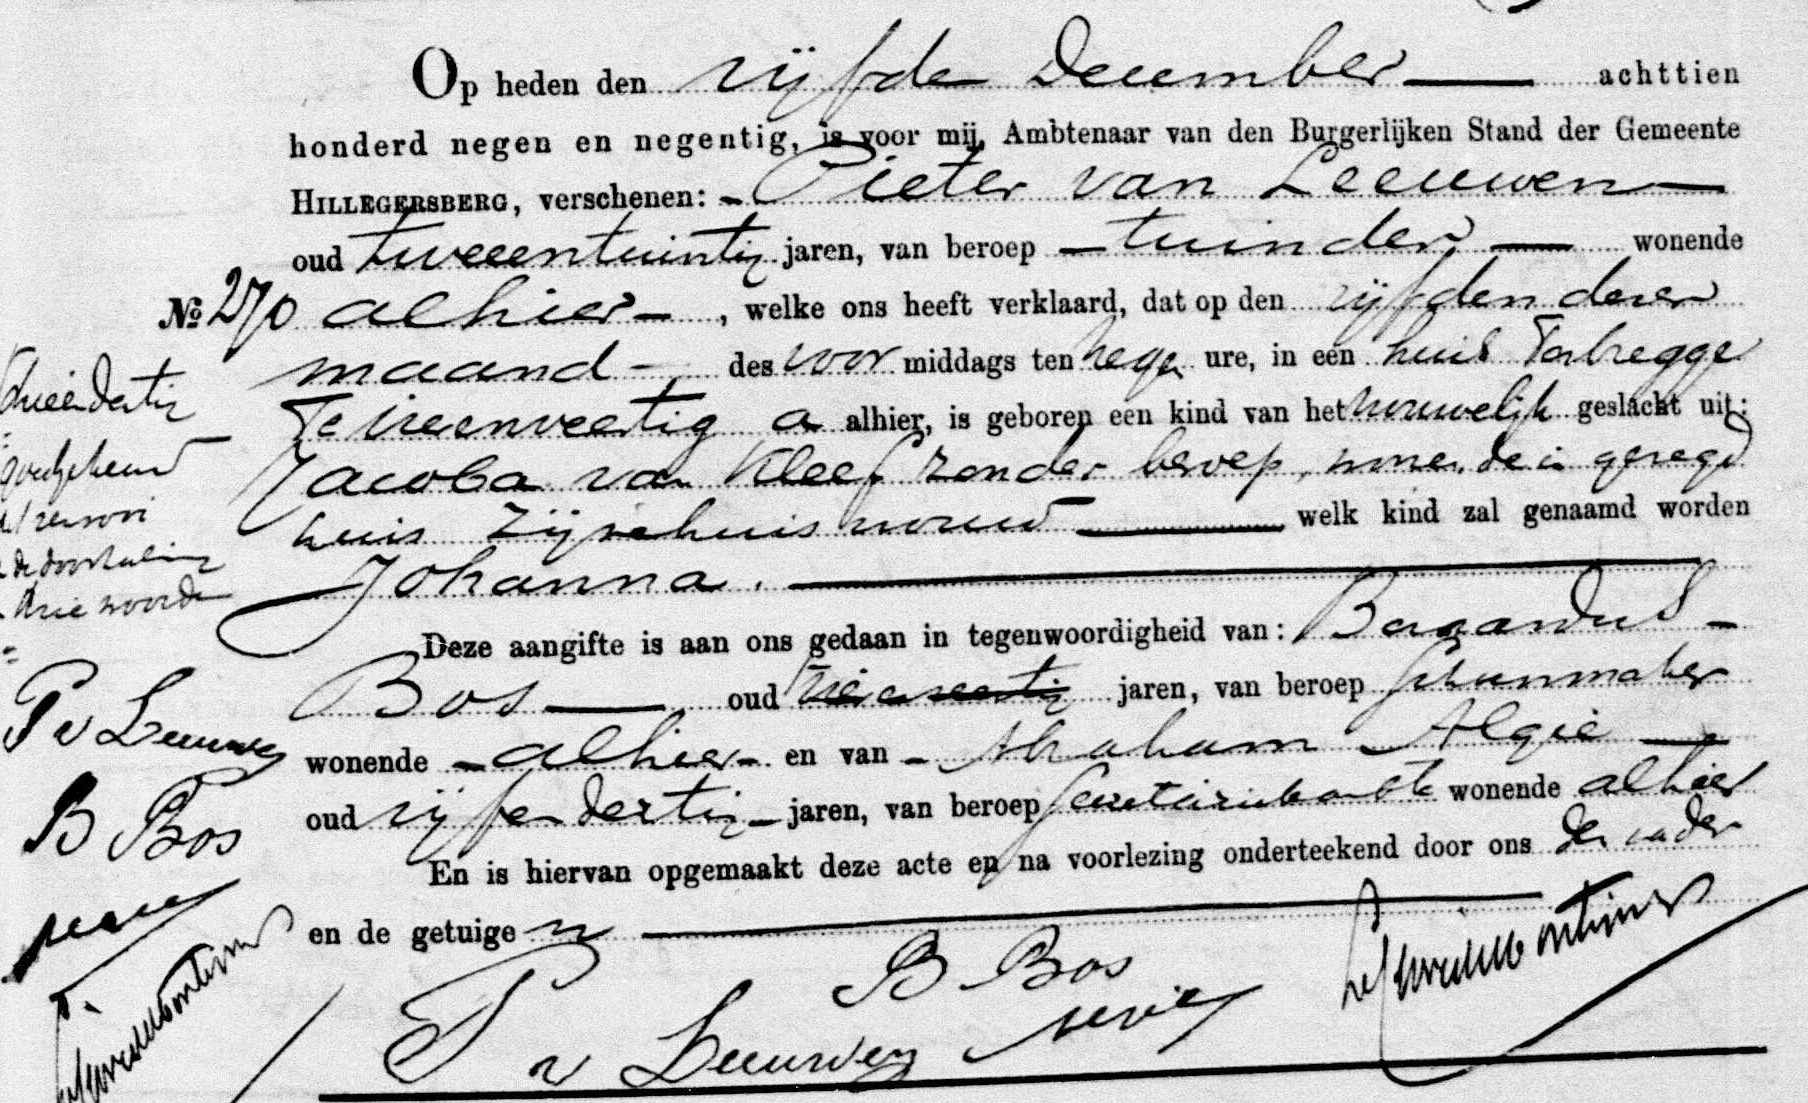 Op heden den vijfde December achttien
honderd negen en negentig, is voor mij, Ambtenaar van den Burgerlijken Stand der Gemeente
HILLEGERSBERG, verschenen: Pieter van Leeuwen
oud tweeentwintig jaren, van beroep tuinder wonende
No 270 alhier, welke ons heeft verklaard, dat op den vijfden dezer
maand des voor middags ten negen ure, in een huis Terbregge
drieendertig
alhier, is geboren een kind van het vrouwelijk geslacht uit:
goedgekeurd
Jacoba van Kleef zonder beroep, wonende in gezegd
huis zijne huisvrouw welk kind zal genaamd worden
de doorhaling
drie woorden
Johanna.
Deze aangifte is aan ons gedaan in tegenwoordigheid van: Bernardus
Bos oud jaren, van beroep Schoenmaker
P v Leeuwen
wonende alhier en van Abraham Algie
B Bos
oud vijfendertig jaren, van beroep wonende alhier
En is hiervan opgemaakt deze acte en na voorlezing onderteekend door ons den vader
en de getuigen
B Bos
P v Leeuwen